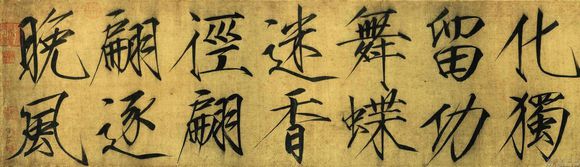 化獨
留功
舞蝶
迷香
徑翩
翩逐
晚風